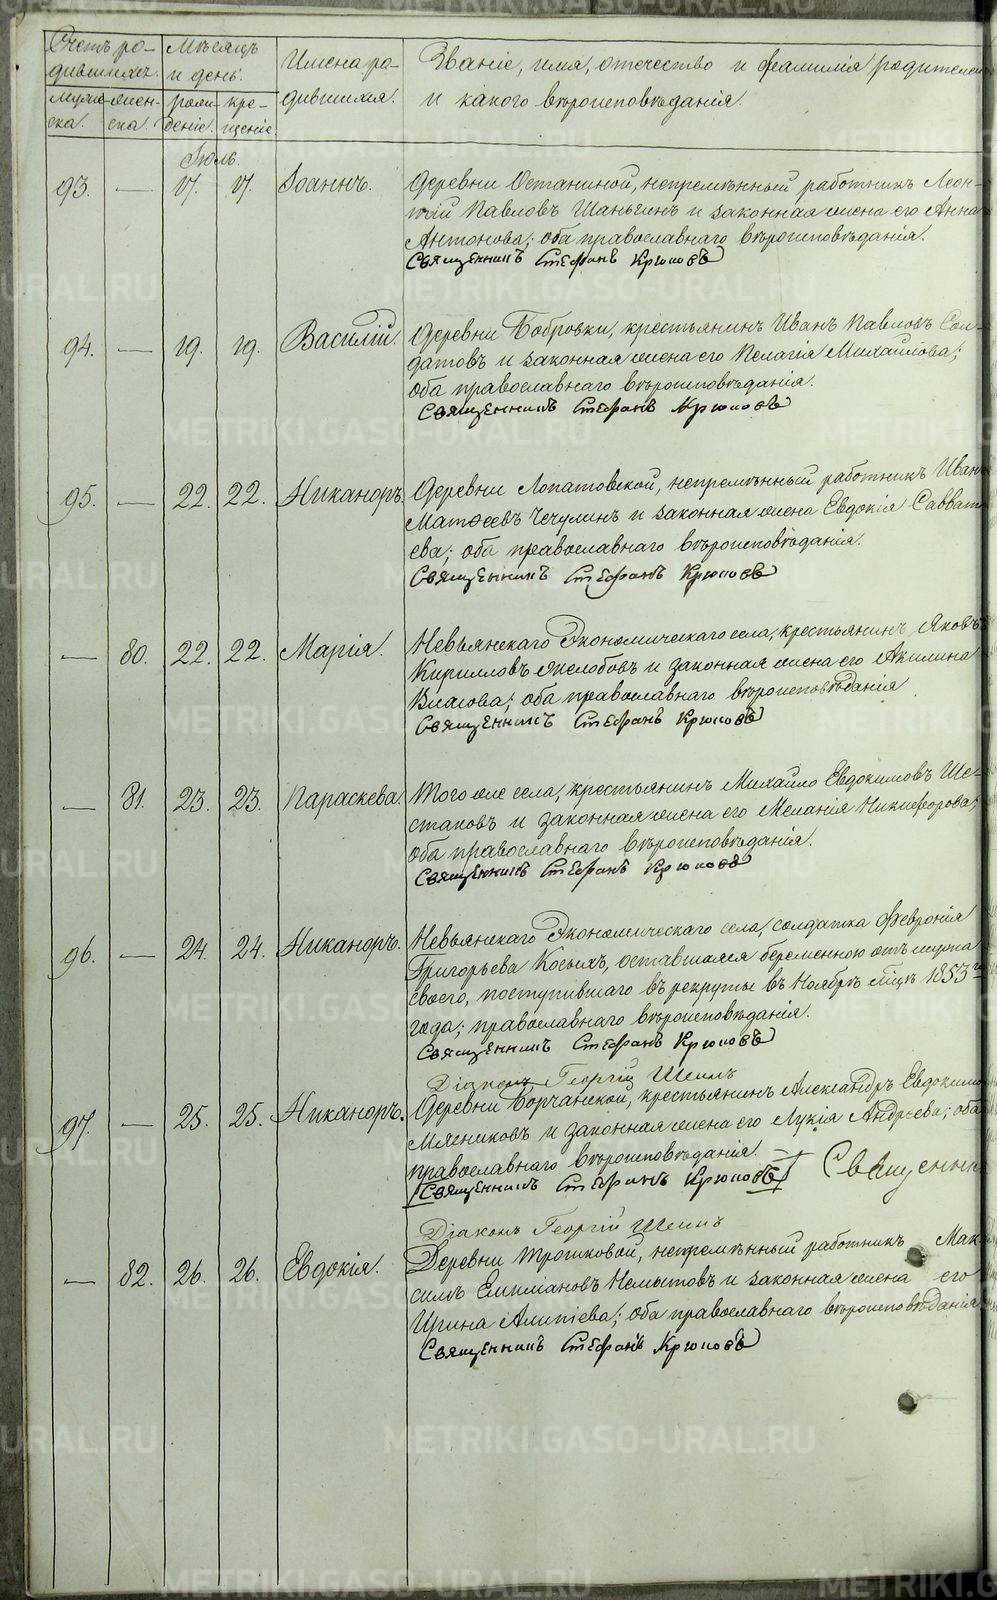 Счетъ ро- Мѣсяцъ Имена ро- Званіе, имя, отечество и фамилія родителей
дившихся. и день. дившихся. и какого вѣроисповѣданія.
муже- жен- рож- кре-
ска. ска. деніе. щеніе.
Іюль.
93. — 17. 17. Іоаннъ. Деревни Останиной, непремѣнный работникъ Леон-
тій Павловъ Шаньгинъ и законная жена его Анна
Антонова; оба православнаго вѣроисповѣданія.
Священникъ Стефанъ Крюковъ
94. — 19. 19. Василій. Деревни Бобровки, крестьянинъ Иванъ Павловъ Сол-
датовъ и законная жена его Пелагія Михайлова;
оба православнаго вѣроисповѣданія.
Священникъ Стефанъ Крюковъ
95. — 22. 22. Никаноръ. Деревни Лопатовской, непремѣнный работникъ Иванъ
Матѳеевъ Чечулинъ и законная жена Евдокія Савват
ева; оба православнаго вѣроисповѣданія.
Священникъ Стефанъ Крюковъ
— 80. 22. 22. Марія. Невьянскаго Экономическаго села, крестьянинъ Яковъ
Кирилловъ Желобовъ и законная жена его Акилина
Власова; оба православнаго вѣроисповѣданія
Священникъ Стефанъ Крюковъ
— 81. 23. 23. Параскева. Того же села, крестьянинъ Михайло Евдокимовъ Ше-
стаковъ и законная жена его Меланія Никифорова;
оба православнаго вѣроисповѣданія.
Священникъ Стефанъ Крюковъ
96. — 24. 24. Никаноръ. Невьянскаго Экономическаго села, солдатка Февронія
Григорьева Косыхъ, оставшаяся беременною отъ мужа
своего, поступившаго въ рекруты въ Ноябрѣ мцѣ 1853 го
года; православнаго вѣроисповѣданія.
Священникъ Стефанъ Крюковъ
Діаконъ Георгій Шеинъ
97. — 25. 25. Никаноръ. Деревни Борчанской, крестьянинъ Александръ Евдокимо
Мясниковъ и законная жена его Лукія Андреева; оба
православнаго вѣроисповѣданія.
Священникъ Стефанъ Крюковъ Священник
Діаконъ Георгій Шеинъ
— 82. 26. 26. Евдокія. Деревни Трошковой, непремѣнный работникъ Мак
симъ Емиліановъ Немытовъ и законная жена его
Ирина Алипіева; оба православнаго вѣроисповѣданія
Священникъ Стефанъ Крюковъ
METRIKI.GASO-URAL.RU